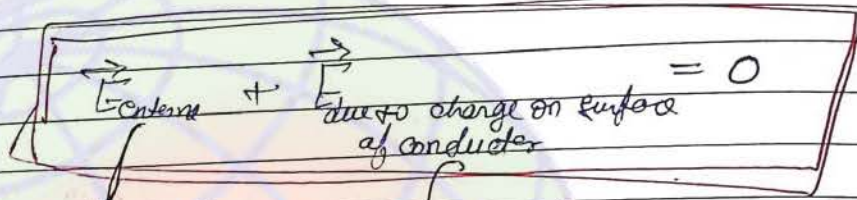 E⃗ externa + E⃗ due to charge on surface of conductor = 0